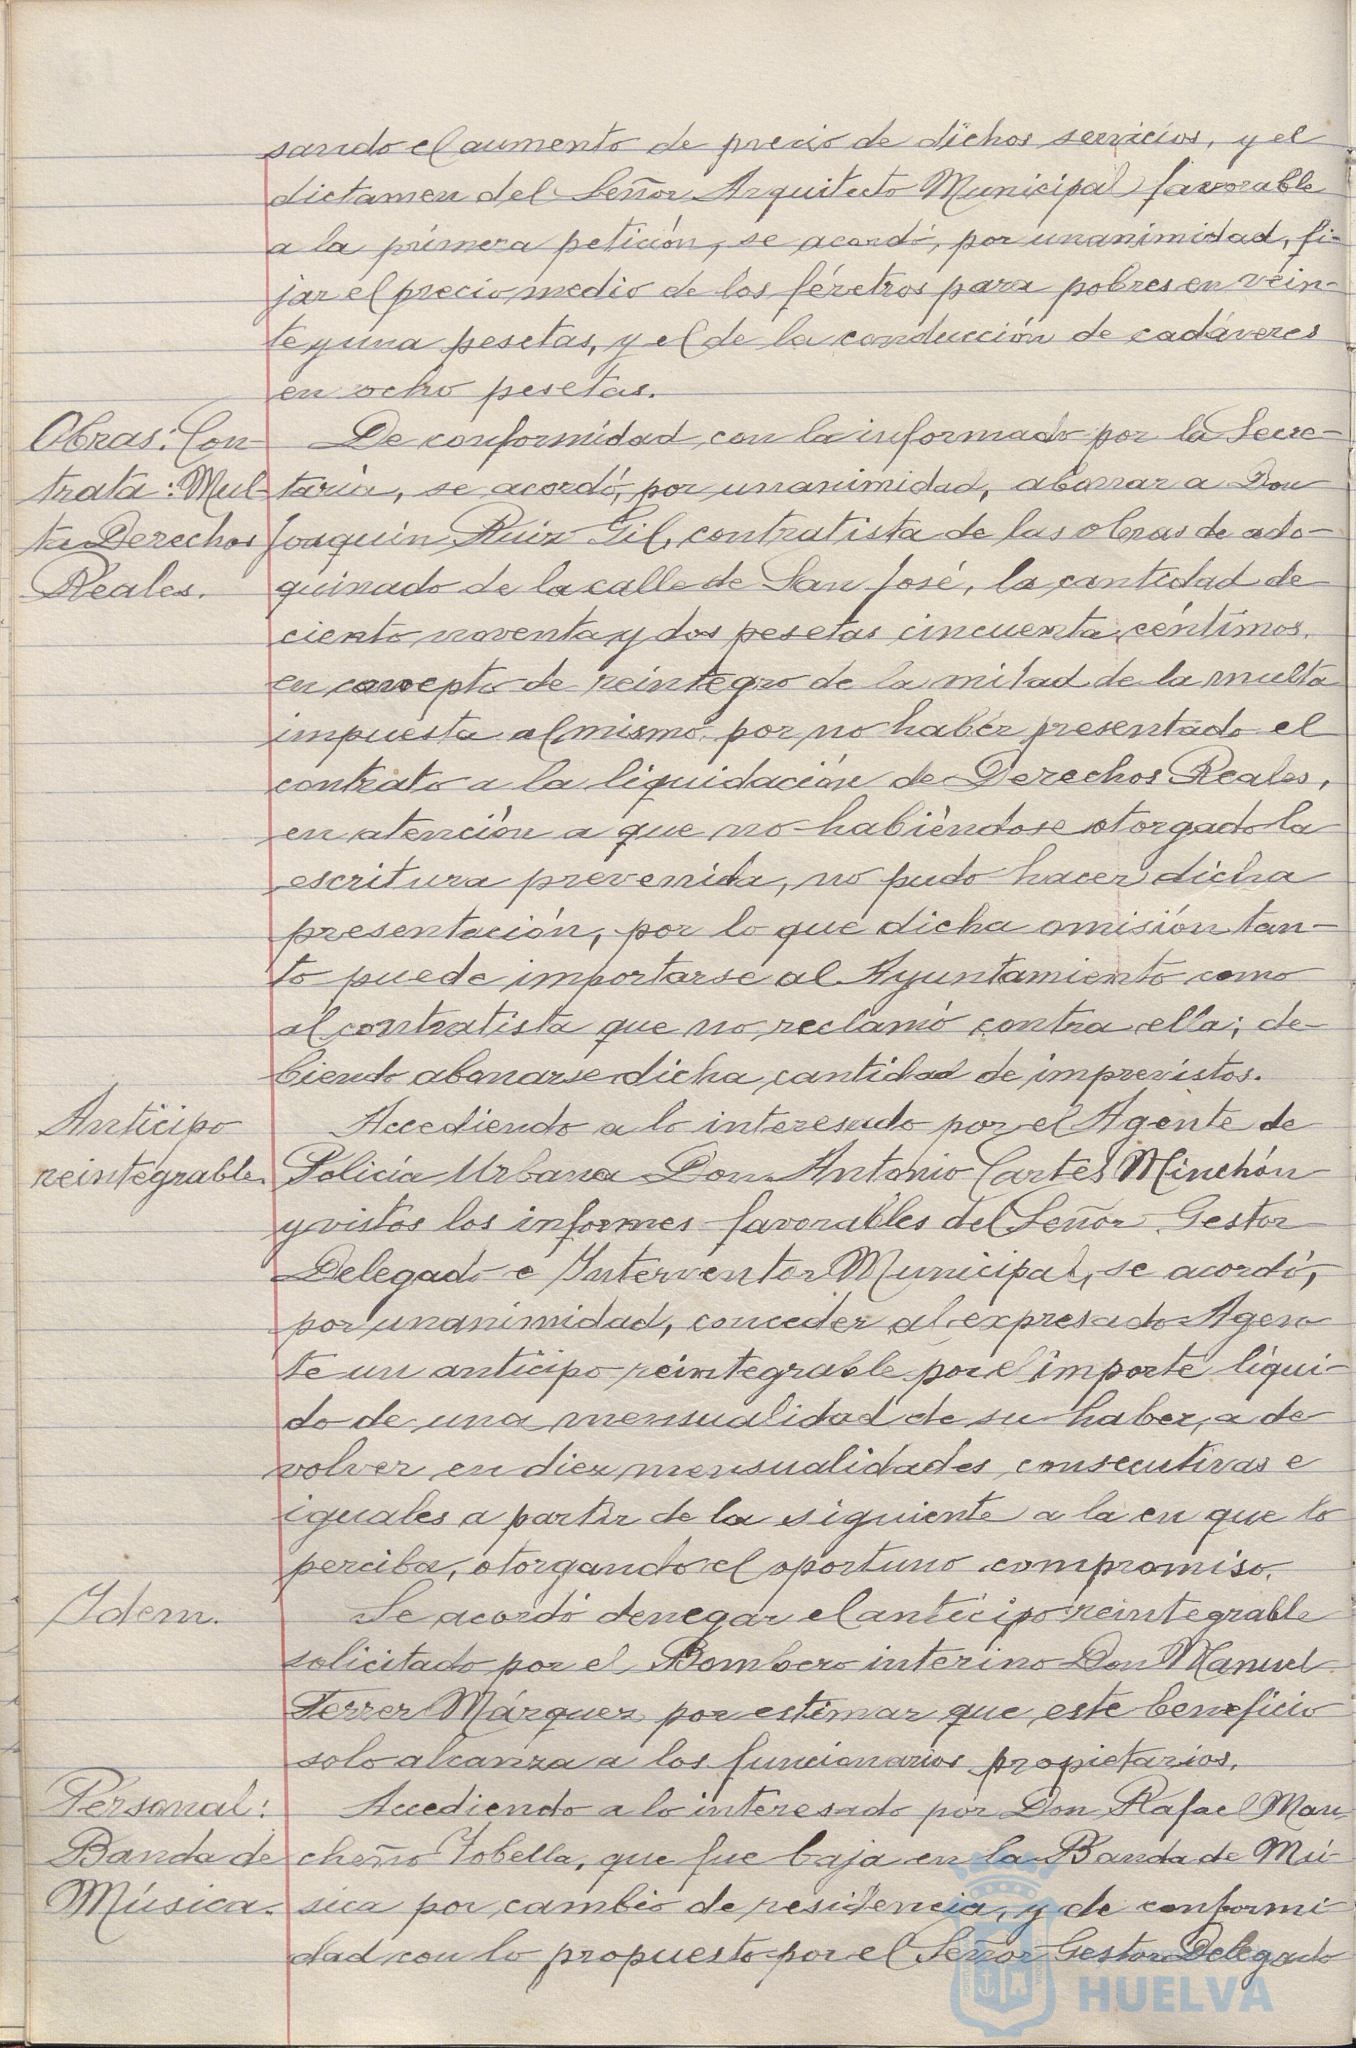 sando el aumento de precio de dichos servicios, y el
dictamen del Señor Arquitecto Municipal favorable
a la primera petición, se acordó, por unanimidad, fi-
jar el precio medio de los féretros para pobres en vein-
te y una pesetas, y el de la conducción de cadáveres
en ocho pesetas.
Obras: Con-
trata: Mul-
ta Derechos
Reales.
De conformidad con la informado por la Secre-
taría, se acordó, por unanimidad, abonar a Don
Joaquín Ruiz Gil, contratista de las obras de ado-
quinado de la calle de San José, la cantidad de
ciento noventa y dos pesetas cincuenta céntimos,
en concepto de reintegro de la mitad de la multa
impuesta al mismo por no haber presentado el
contrato a la liquidación de Derechos Reales,
en atención a que no habiéndose otorgado la
escritura prevenida, no pudo hacer dicha
presentación, por lo que dicha omisión tan-
to puede importarse al Ayuntamiento como
al contratista que no reclamó contra ella; de-
biendo abonarse dicha cantidad de imprevistos.
Anticipo
reintegrable.
Accediendo a lo interesado por el Agente de
Policía Urbana Don Antonio Cartes Minchón
y vistos los informes favorables del Señor Gestor
Delegado e Interventor Municipal, se acordó,
por unanimidad, conceder al expresado Agen-
te un anticipo reintegrable por el importe líqui-
do de una mensualidad de su haber, a de
volver en diez mensualidades consecutivas e
iguales a partir de la siguiente a la en que lo
perciba, otorgando el oportuno compromiso.
Idem.
Se acordó denegar el anticipo reintegrable
solicitado por el Bombero interino Don Manuel
Ferrer Márquez por estimar que este beneficio
solo alcanza a los funcionarios propietarios.
Personal:
Banda de
Música.
Accediendo a lo interesado por Don Rafael Man-
cheño Tobella, que fue baja en la Banda de Mú-
sica por cambio de residencia, y de conformi-
dad con lo propuesto por el Señor Gestor Delegado
HUELVA